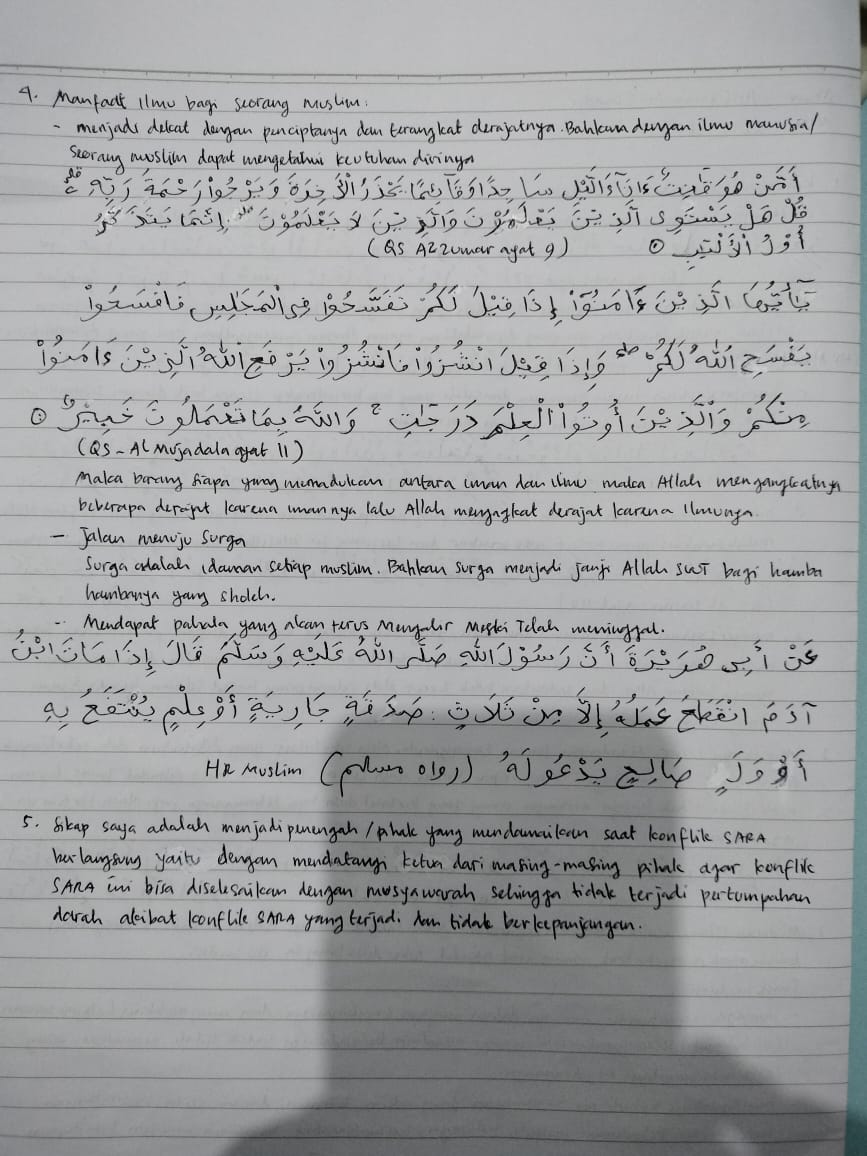 4. Manfaat Ilmu bagi seorang Muslim:
- menjadi dekat dengan penciptanya dan terangkat derajatnya. Bahkan dengan ilmu manusia/
Seorang muslim dapat mengetahui keutuhan dirinya
أَمَّنْ هُوَ قَٰنِتٌ ءَانَآءَ الَّيْلِ سَاجِدًا وَقَآئِمًا يَحْذَرُ الْأَخِرَةَ وَيَرْجُوْا رَحْمَةَ رَبِّهِ ۗ
قُلْ هَلْ يَسْتَوِى الَّذِيْنَ يَعْلَمُوْنَ وَالَّذِيْنَ لَا يَعْلَمُوْنَ ۗ إِنَّمَا يَتَذَكَّرُ
أُوْلُ الْأَلْبَٰبِ ۝ (QS Azzumar ayat 9)
يَٰٓأَيُّهَا الَّذِيْنَ ءَامَنُوْٓا إِذَا قِيْلَ لَكُمْ تَفَسَّحُوْا فِى الْمَجَٰلِسِ فَافْسَحُوْا
يَفْسَحِ اللّٰهُ لَكُمْ ۖ وَإِذَا قِيْلَ انْشُزُوْا فَانْشُزُوْا يَرْفَعِ اللّٰهُ الَّذِيْنَ ءَامَنُوْا
مِنْكُمْ وَالَّذِيْنَ أُوتُوْا الْعِلْمَ دَرَجَٰتٍ ۚ وَاللّٰهُ بِمَا تَعْمَلُونَ خَبِيْرٌ ۝
(QS - Al Mujadala ayat 11)
Maka barang siapa yang memadukan antara iman dan ilmu maka Allah mengangkatnya
beberapa derajat karena imannya lalu Allah mengagkat derajat karena Ilmunya
- Jalan menuju Surga
Surga adalah idaman setiap muslim. Bahkan surga menjadi janji Allah SWT bagi hamba
hambanya yang sholeh.
- Mendapat pahala yang akan terus Mengalir Meski Telah meninggal.
عَنْ أَبِى هُرَيْرَةَ أَنَّ رَسُوْلَ اللّٰهِ صَلَّى اللّٰهُ عَلَيْهِ وَسَلَّمَ قَالَ إِذَا مَاتَ ابْنُ
آدَمَ انْقَطَعَ عَمَلُهُ إِلَّا مِنْ ثَلَاثٍ : صَدَقَةٍ جَارِيَةٍ أَوْ عِلْمٍ يُنْتَفَعُ بِهِ
أَوْ وَلَدٍ صَالِحٍ يَدْعُو لَهُ (رواه مسلم) HR Muslim
5. Sikap saya adalah menjadi penengah /pihak yang mendamaikan saat konflik SARA
berlangsung yaitu dengan mendatangi ketua dari masing-masing pihak agar konflik
SARA ini bisa diselesaikan dengan musyawarah sehingga tidak terjadi pertumpahan
darah akibat konflik SARA yang terjadi dan tidak berkepanjangan.